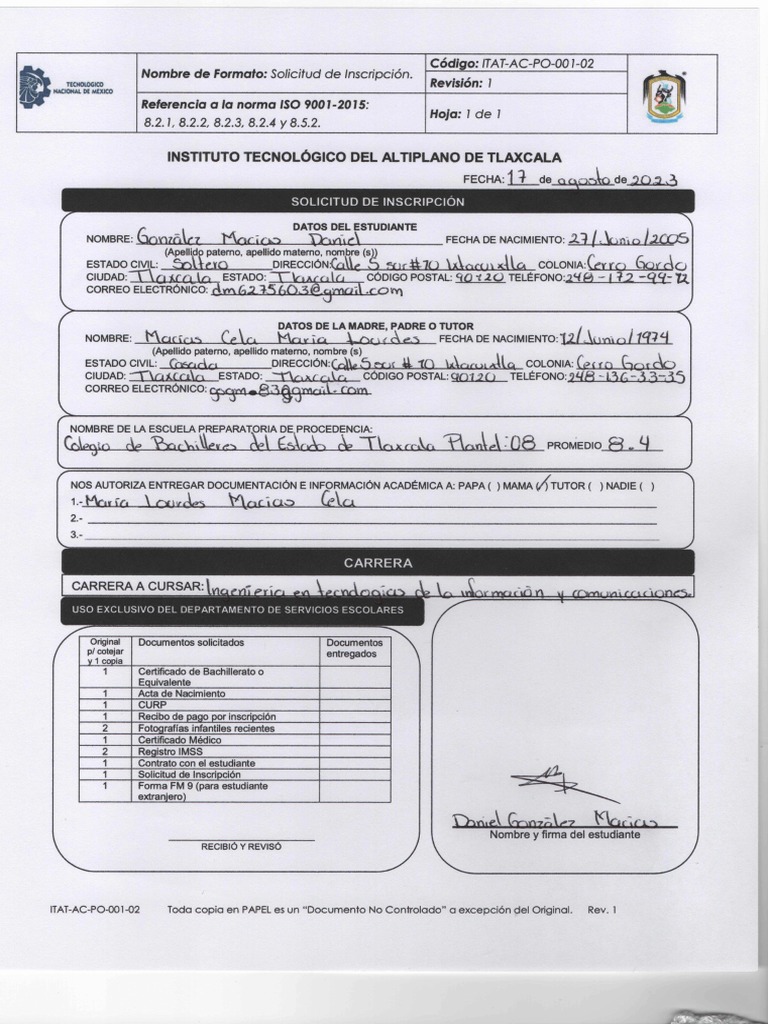 TECNOLÓGICO
NACIONAL DE MÉXICO
Nombre de Formato: Solicitud de Inscripción.
Código: ITAT-AC-PO-001-02
Revisión: 1
Referencia a la norma ISO 9001-2015:
8.2.1, 8.2.2, 8.2.3, 8.2.4 y 8.5.2.
Hoja: 1 de 1
INSTITUTO TECNOLÓGICO DEL ALTIPLANO DE TLAXCALA
FECHA: 17 de agosto de 2023
SOLICITUD DE INSCRIPCIÓN
DATOS DEL ESTUDIANTE
NOMBRE: González Macias Daniel FECHA DE NACIMIENTO: 27/Junio/2005
(Apellido paterno, apellido materno, nombre (s))
ESTADO CIVIL: Soltero DIRECCIÓN: Calle 5 sur #10 Ixtacuixtla COLONIA: Cerro Gordo
CIUDAD: Tlaxcala ESTADO: Tlaxcala CÓDIGO POSTAL: 90120 TELÉFONO: 248-172-99-72
CORREO ELECTRÓNICO: dm6275603@gmail.com
DATOS DE LA MADRE, PADRE O TUTOR
NOMBRE: Macías Cela María Lourdes FECHA DE NACIMIENTO: 12/Junio/1974
(Apellido paterno, apellido materno, nombre (s)
ESTADO CIVIL: Casada DIRECCIÓN: Calle 5 sur #10 Ixtacuixtla COLONIA: Cerro Gordo
CIUDAD: Tlaxcala ESTADO: Tlaxcala CÓDIGO POSTAL: 90120 TELÉFONO: 248-136-33-35
CORREO ELECTRÓNICO:
NOMBRE DE LA ESCUELA PREPARATORIA DE PROCEDENCIA:
Colegio de Bachilleres del Estado de Tlaxcala Plantel: 08 PROMEDIO 8.4
NOS AUTORIZA ENTREGAR DOCUMENTACIÓN E INFORMACIÓN ACADÉMICA A: PAPA ( ) MAMA (✓) TUTOR ( ) NADIE ( )
1.- María Lourdes Macias Cela
2.-
3.-
CARRERA
CARRERA A CURSAR: Ingenieria en tecnologias de la información y comunicaciones.
USO EXCLUSIVO DEL DEPARTAMENTO DE SERVICIOS ESCOLARES
Original p/ cotejar y 1 copia Documentos solicitados Documentos entregados
1 Certificado de Bachillerato o Equivalente
1 Acta de Nacimiento
1 CURP
1 Recibo de pago por inscripción
2 Fotografías infantiles recientes
1 Certificado Médico
2 Registro IMSS
1 Contrato con el estudiante
1 Solicitud de Inscripción
1 Forma FM 9 (para estudiante extranjero)
RECIBIÓ Y REVISÓ
Daniel González Macias
Nombre y firma del estudiante
ITAT-AC-PO-001-02 Toda copia en PAPEL es un “Documento No Controlado” a excepción del Original. Rev. 1